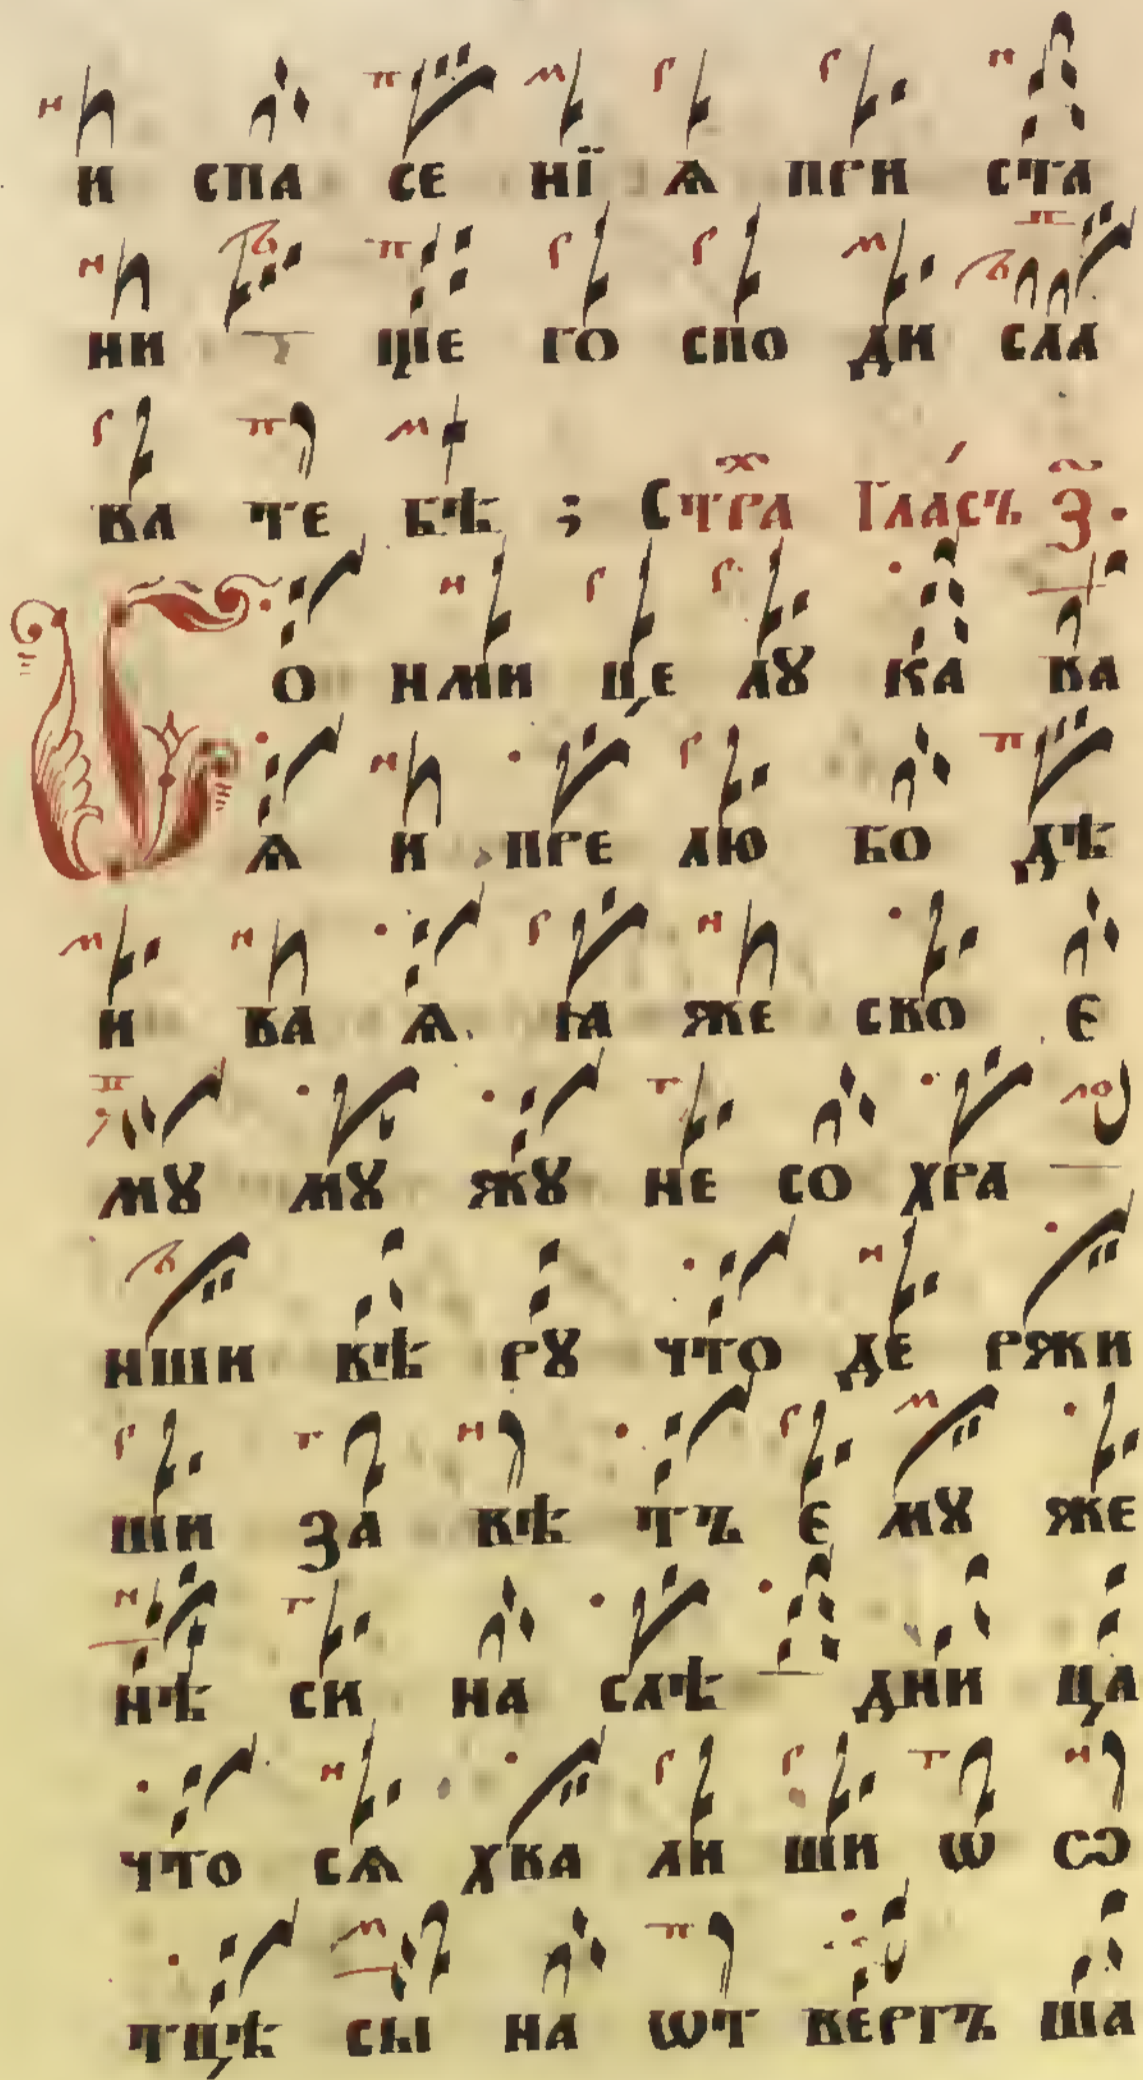 и спа се нїѧ при ста
ни ще го спо ди сла
ва те бѣ ; Стр̾а Гла́съ з҃ .
Со нми це лꙋ ка ва
ѧ и пре лю бо дѣ
и ва ѧ. ꙗ же сво є
мꙋ мꙋ жꙋ не со хра
нши вѣ рꙋ что де ржи
ши за вѣ тъ є мꙋ же
нѣ си на слѣ дни ца
что сѧ хва ли ши ѡ ѻ
тцѣ сы на ѿ вергъ ша